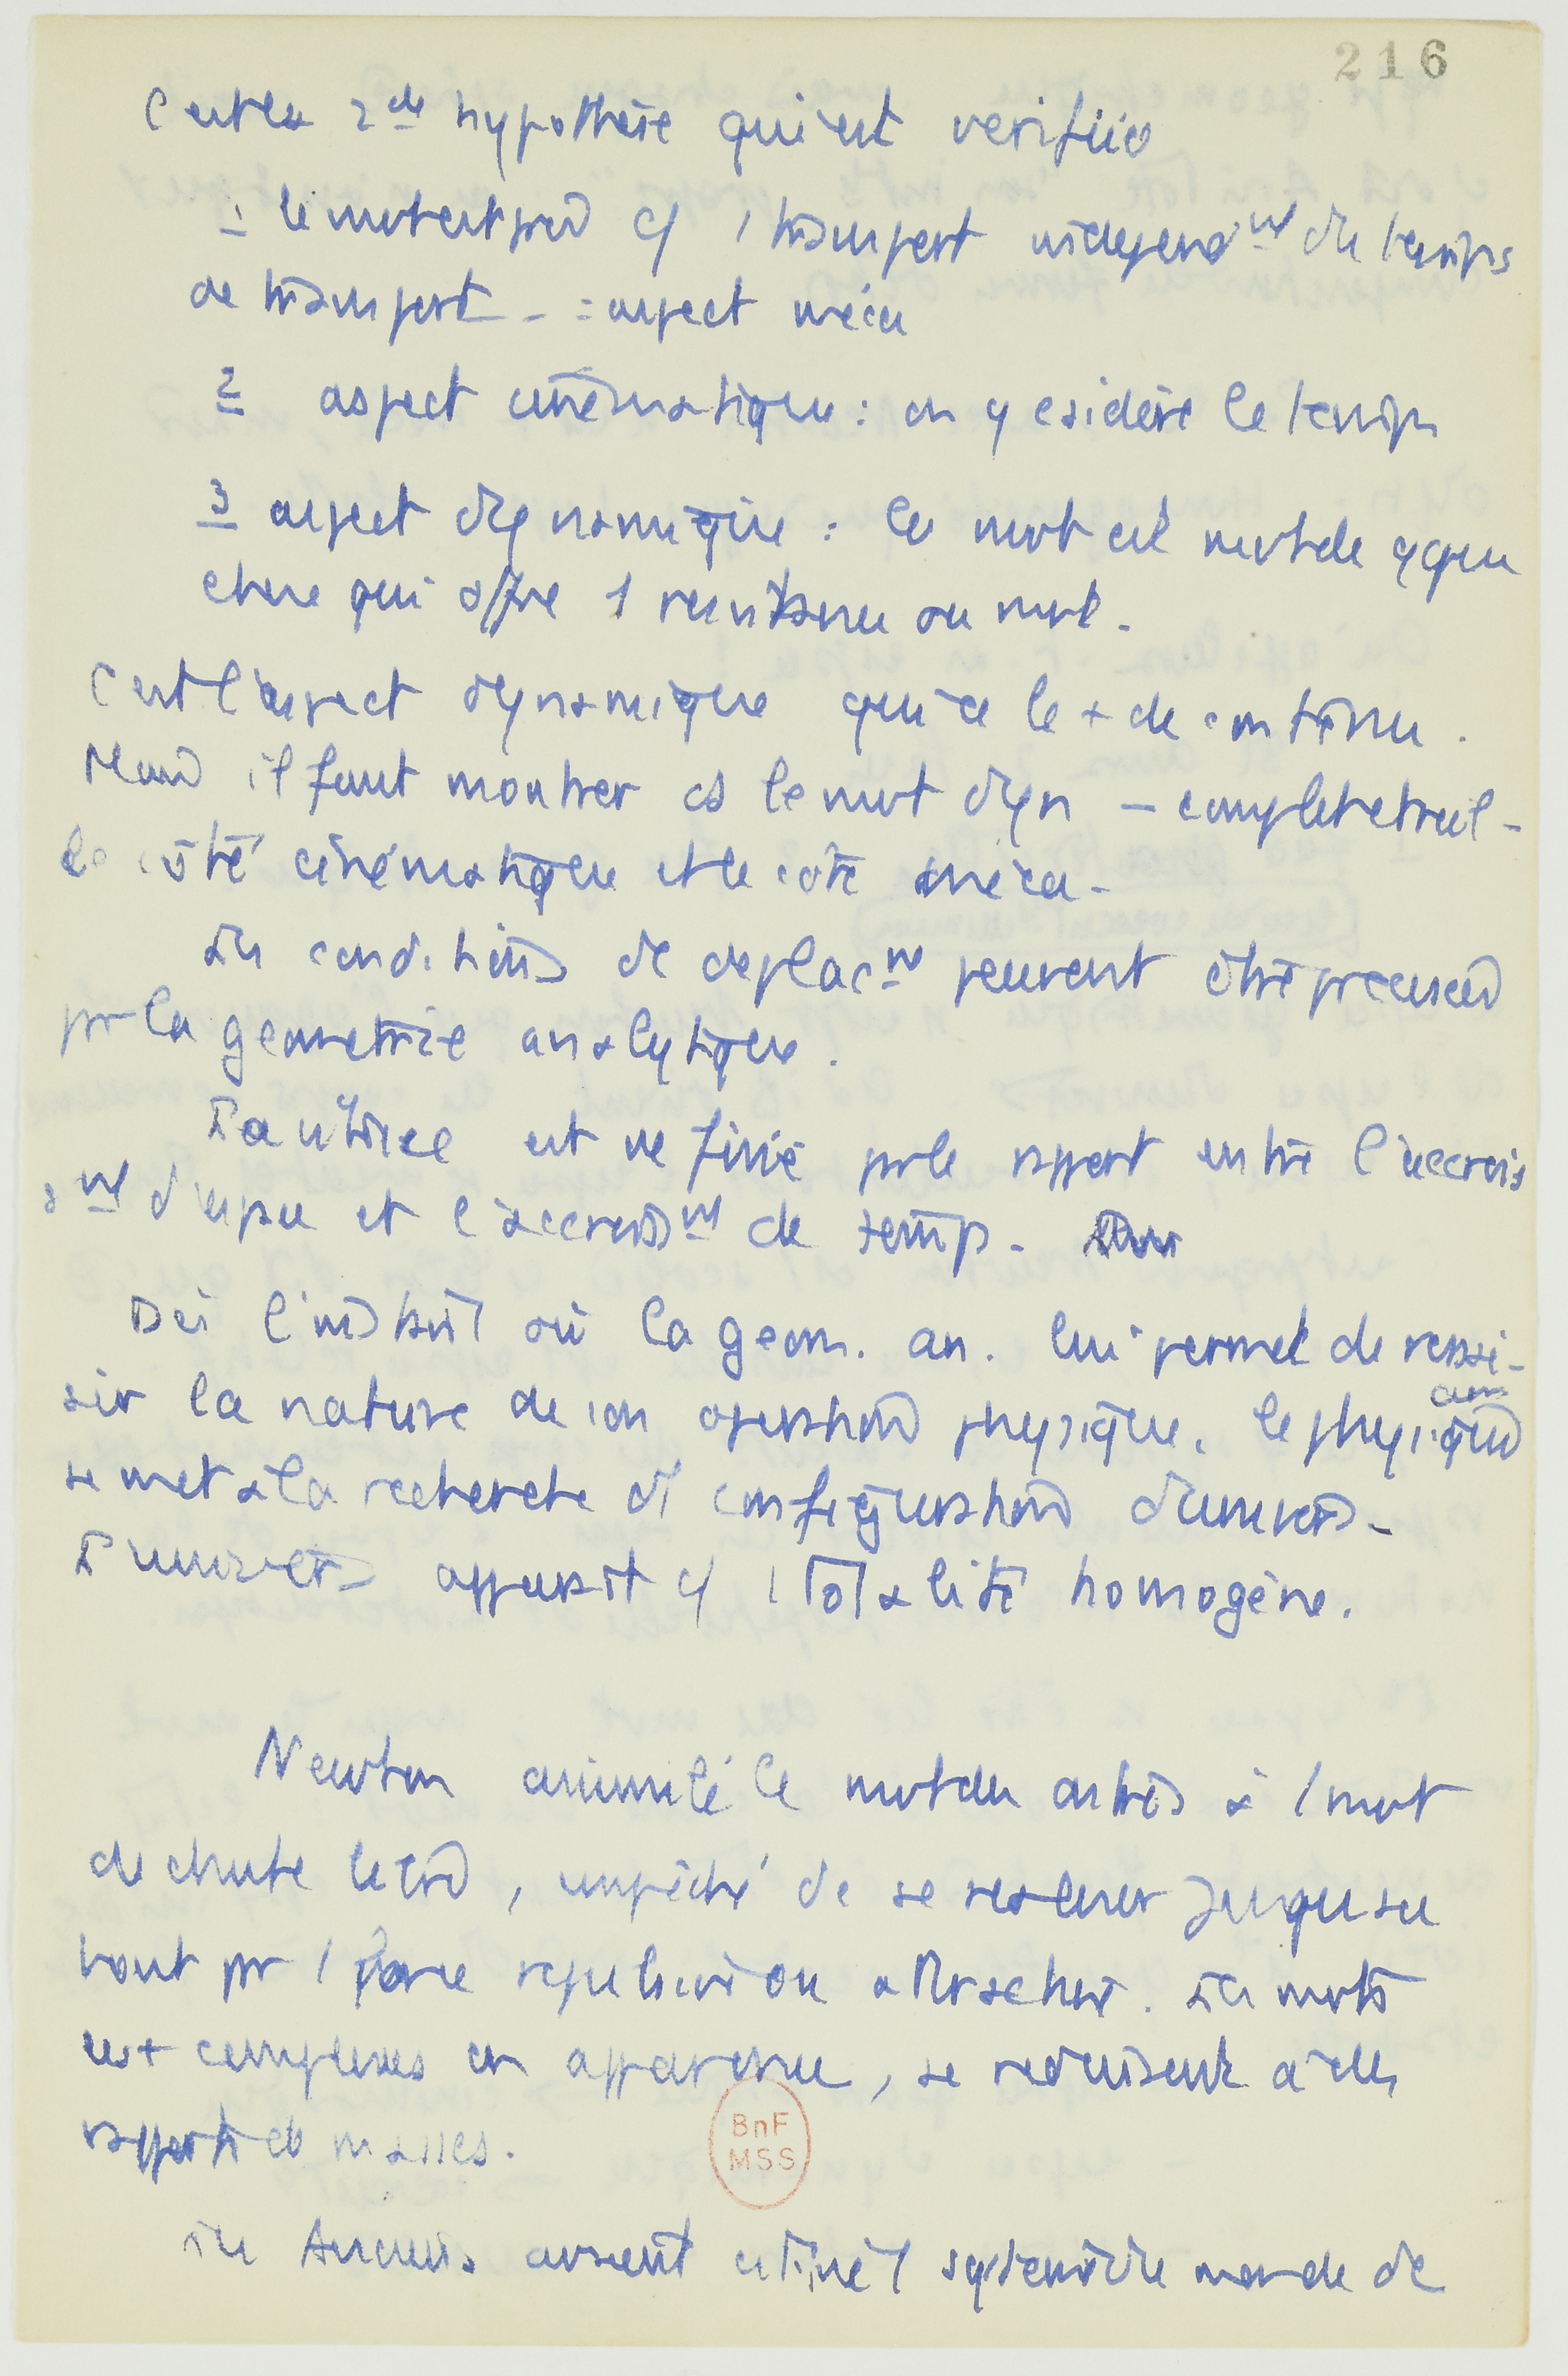 216
C'est la 2de hypothèse qui est verifiée
1 le mvt est pris c/ 1 transport independmt du temps
de transport - = aspect méca
2 aspect cinématique : on y csidère le temps
3 aspect dynamique : le mvt est mvt de qque
chose qui offre 1 resistance au mvt.
C'est l'aspect dynamique qui a le + de contenu.
Mais il faut montrer ds le mvt dyn - complet et réel -
le côté cinématique et le côté méca -
Les conditions de deplacmt peuvent être precisées
pr la geometrie analytique.
La vitesse est definie pr le rapport entre l'accrois
smt d'espace et l'accroissmt de temps.
Dès l'instant où la geom. an. lui permet de ressai-
sir la nature de son operation physique, le physicien
se met à la recherche de configurations d'univers.
L'univers apparaît c/ 1 totalité homogène.
Newton assimilé le mvt des astres à 1 mvt
de chute libre, empêché de se realiser jusqu'au
bout pr 1 force repulsive ou attractive. Les mvts
les + complexes en apparence, se reduisent à des
rapports de masses.
Les Anciens avaient estimé 1 système du monde de
BnF
MSS